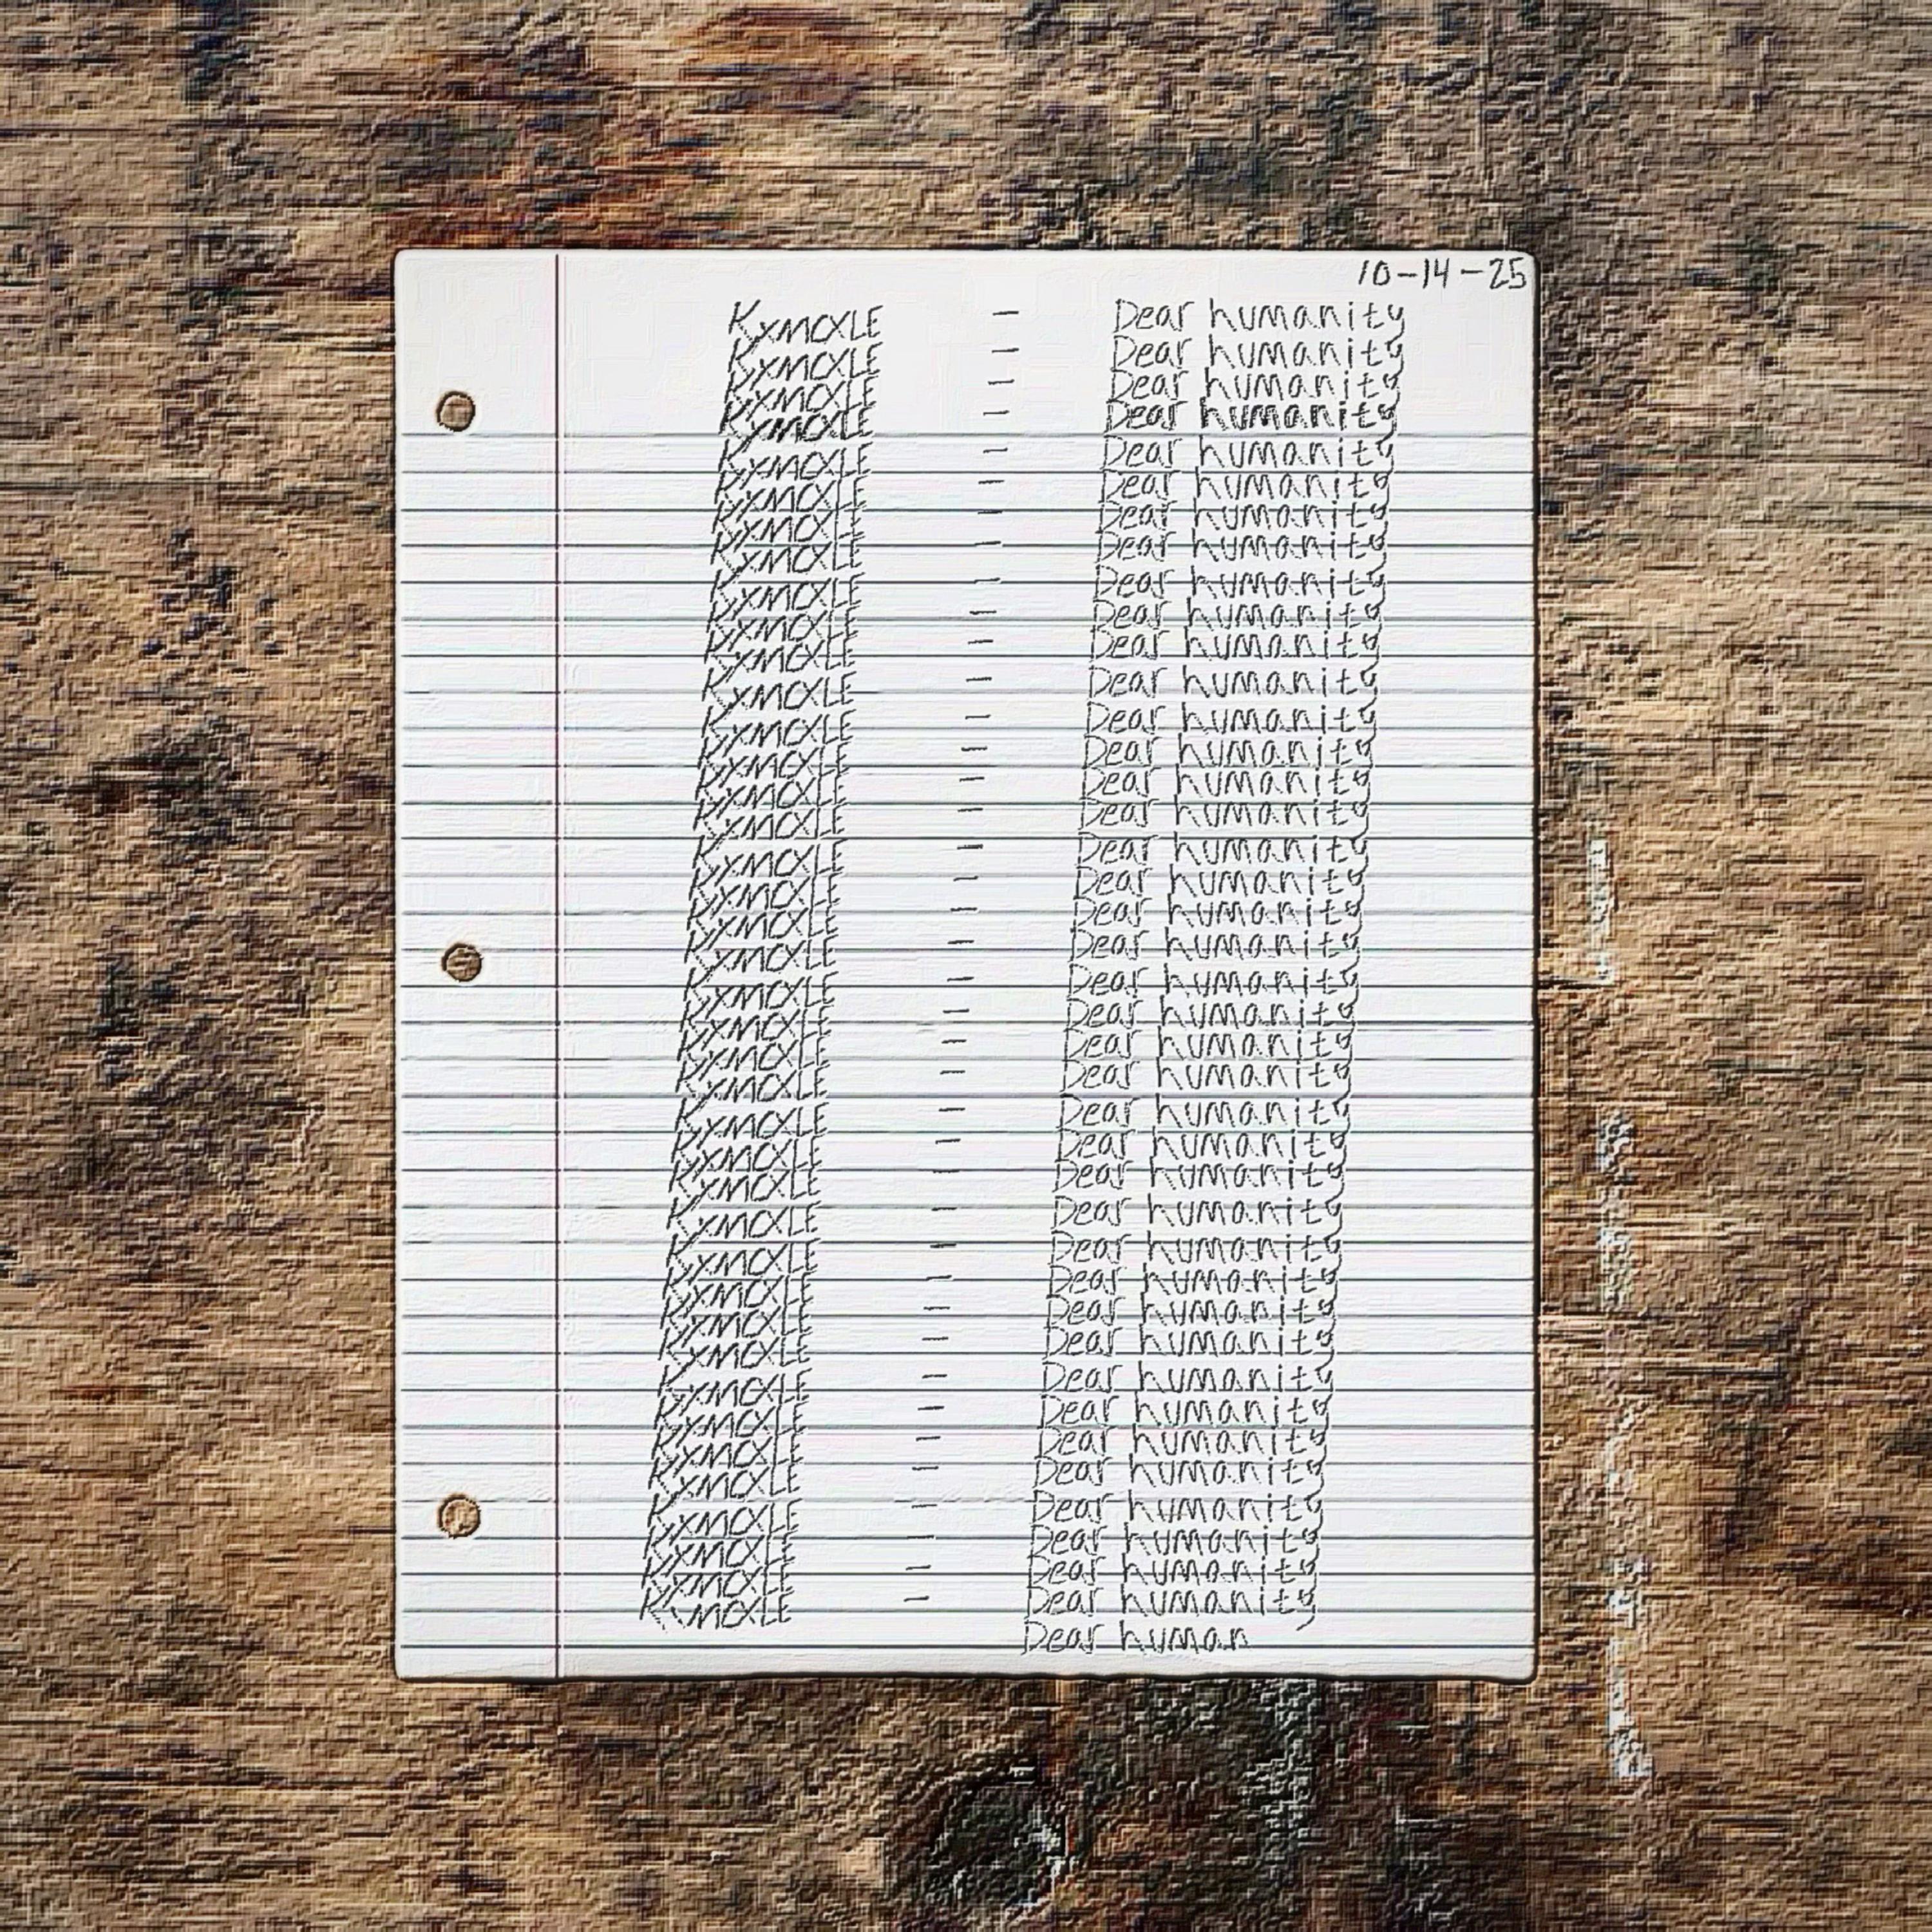 10-14-25
KYMCXLE - Dear humanity
KYMCXLE - Dear humanity
KYMCXLE - Dear humanity
KYMCXLE - Dear humanity
KYMCXLE - Dear humanity
KYMCXLE - Dear humanity
KYMCXLE - Dear humanity
KYMCXLE - Dear humanity
KYMCXLE - Dear humanity
KYMCXLE - Dear humanity
KYMCXLE - Dear humanity
KYMCXLE - Dear humanity
KYMCXLE - Dear humanity
KYMCXLE - Dear humanity
KYMCXLE - Dear humanity
KYMCXLE - Dear humanity
KYMCXLE - Dear humanity
KYMCXLE - Dear humanity
KYMCXLE - Dear humanity
KYMCXLE - Dear humanity
KYMCXLE - Dear humanity
KYMCXLE - Dear humanity
KYMCXLE - Dear humanity
KYMCXLE - Dear humanity
KYMCXLE - Dear humanity
KYMCXLE - Dear humanity
KYMCXLE - Dear humanity
KYMCXLE - Dear humanity
KYMCXLE - Dear humanity
KYMCXLE - Dear humanity
KYMCXLE - Dear humanity
KYMCXLE - Dear humanity
KYMCXLE - Dear humanity
KYMCXLE - Dear humanity
KYMCXLE - Dear humanity
KYMCXLE - Dear humanity
KYMCXLE - Dear humanity
KYMCXLE - Dear humanity
KYMCXLE - Dear humanity
KYMCXLE - Dear humanity
Dear human